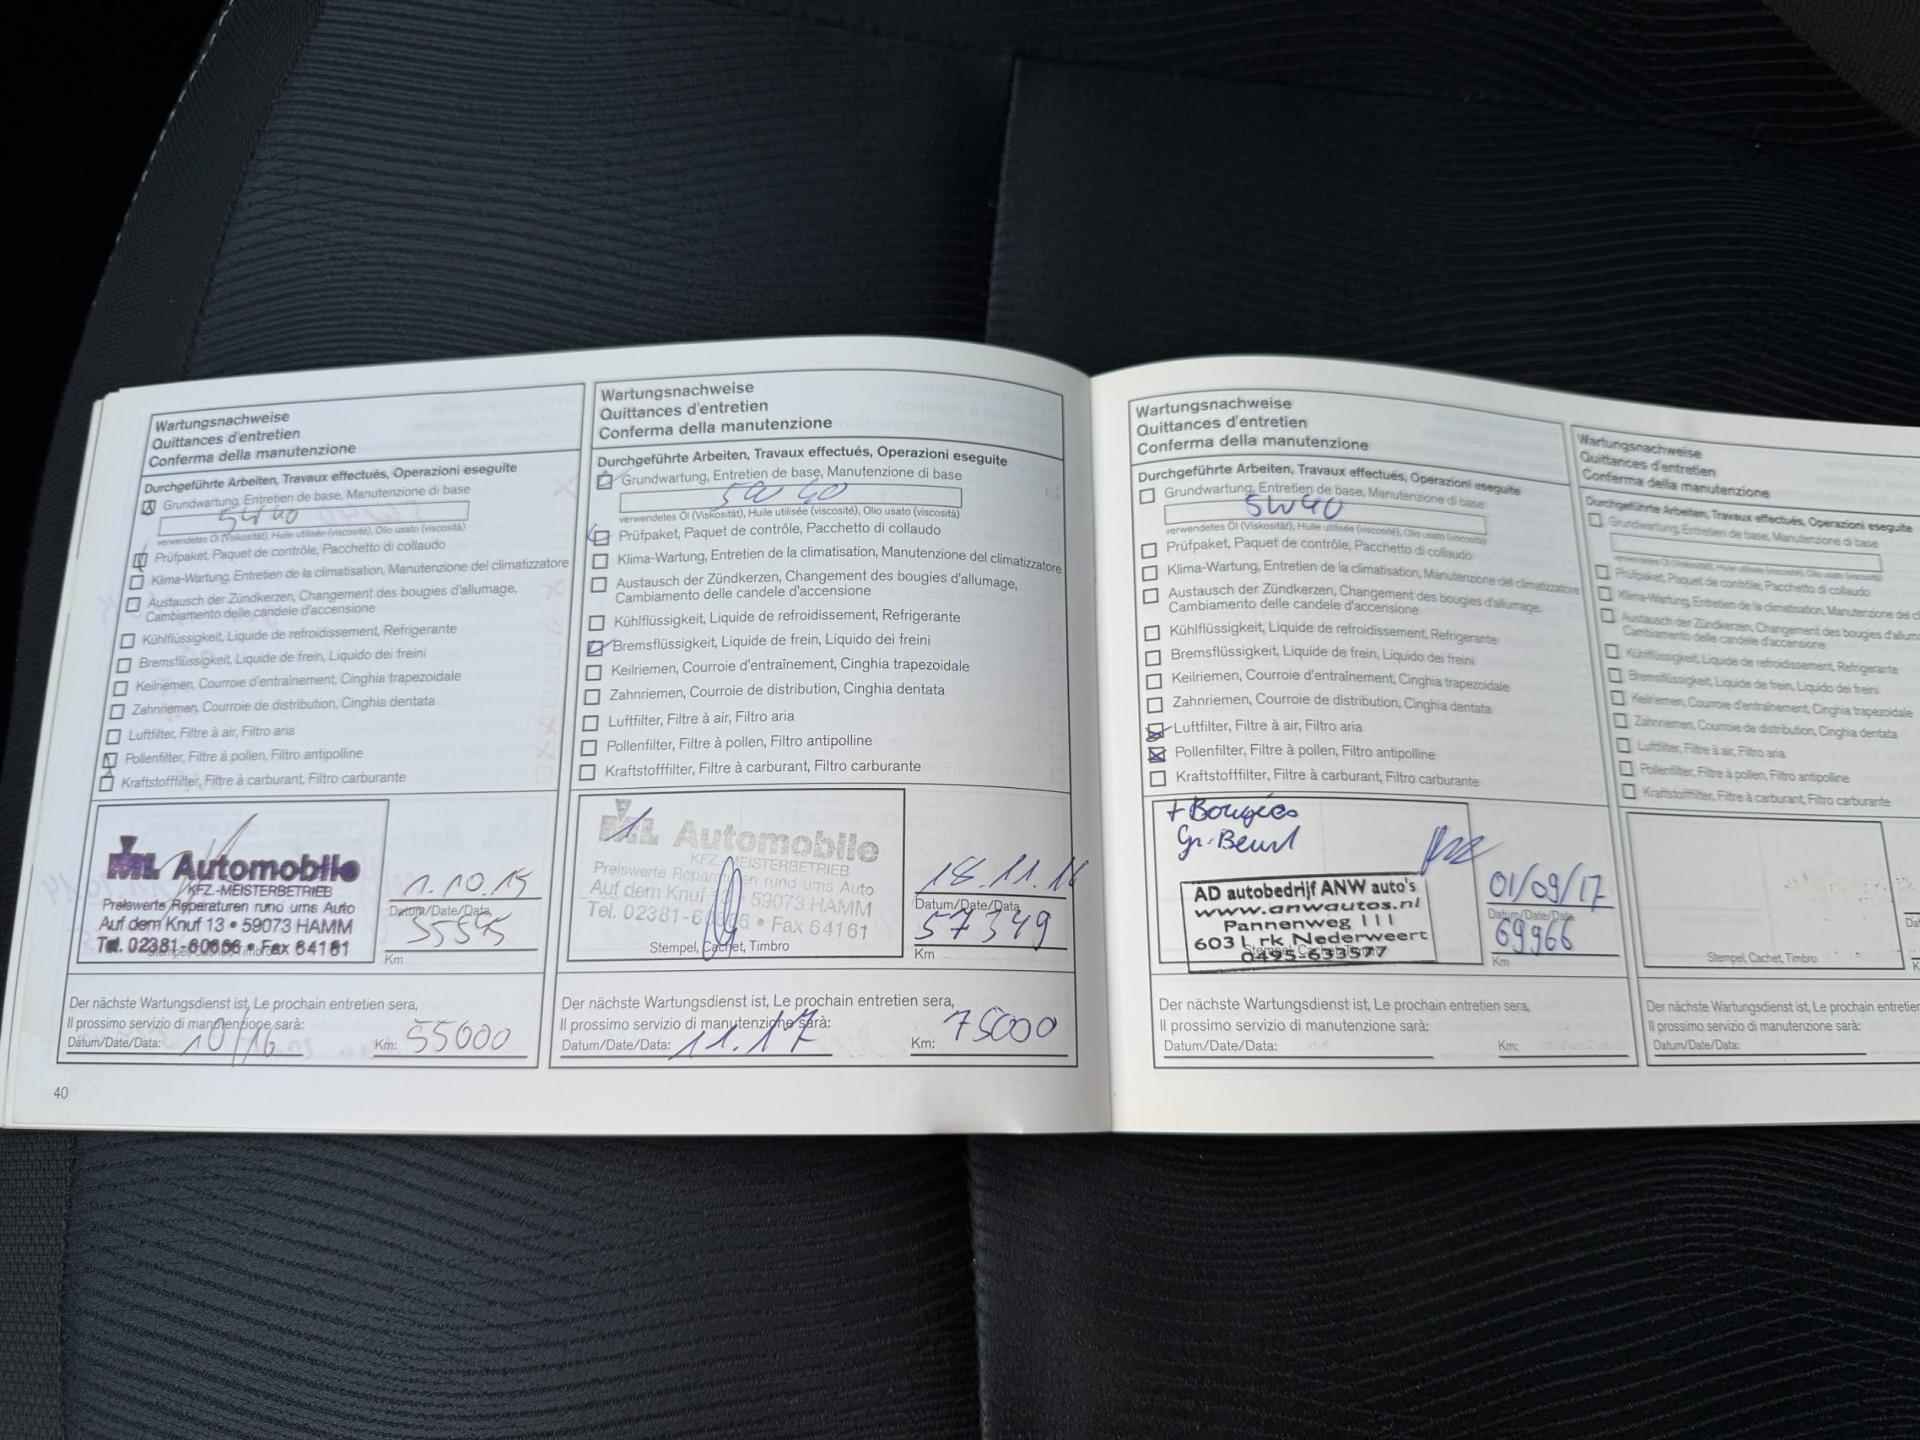 Wartungsnachweise
Quittances d'entretien
Conferma della manutenzione
Durchgeführte Arbeiten, Travaux effectués, Operazioni eseguite
Grundwartung, Entretien de base, Manutenzione di base
5W40
verwendetes Öl (Viskosität), Huile utilisée (viscosité), Olio usato (viscosità)
Prüfpaket, Paquet de contrôle, Pacchetto di collaudo
Klima-Wartung, Entretien de la climatisation, Manutenzione del climatizzatore
Austausch der Zündkerzen, Changement des bougies d'allumage,
Cambiamento delle candele d'accensione
Kühlflüssigkeit, Liquide de refroidissement, Refrigerante
Bremsflüssigkeit, Liquide de frein, Liquido dei freini
Keilriemen, Courroie d'entraînement, Cinghia trapezoidale
Zahnriemen, Courroie de distribution, Cinghia dentata
Luftfilter, Filtre à air, Filtro aria
Pollenfilter, Filtre à pollen, Filtro antipolline
Kraftstofffilter, Filtre à carburant, Filtro carburante
ML Automobile
KFZ.-MEISTERBETRIEB
Preiswerte Reparaturen rund ums Auto
Auf dem Knuf 13 • 59073 HAMM
Tel. 02381-60666 • Fax 64161
1.10.15
Datum/Date/Data
Km
Der nächste Wartungsdienst ist, Le prochain entretien sera,
Il prossimo servizio di manutenzione sarà:
Datum/Date/Data: 10/16 Km: 55000
40
Wartungsnachweise
Quittances d'entretien
Conferma della manutenzione
Durchgeführte Arbeiten, Travaux effectués, Operazioni eseguite
Grundwartung, Entretien de base, Manutenzione di base
5W40
verwendetes Öl (Viskosität), Huile utilisée (viscosité), Olio usato (viscosità)
Prüfpaket, Paquet de contrôle, Pacchetto di collaudo
Klima-Wartung, Entretien de la climatisation, Manutenzione del climatizzatore
Austausch der Zündkerzen, Changement des bougies d'allumage,
Cambiamento delle candele d'accensione
Kühlflüssigkeit, Liquide de refroidissement, Refrigerante
Bremsflüssigkeit, Liquide de frein, Liquido dei freini
Keilriemen, Courroie d'entraînement, Cinghia trapezoidale
Zahnriemen, Courroie de distribution, Cinghia dentata
Luftfilter, Filtre à air, Filtro aria
Pollenfilter, Filtre à pollen, Filtro antipolline
Kraftstofffilter, Filtre à carburant, Filtro carburante
ML Automobile
KFZ.-MEISTERBETRIEB
Preiswerte Reparaturen rund ums Auto
Auf dem Knuf 13 • 59073 HAMM
Tel. 02381-60666 • Fax 64161
Stempel, Cachet, Timbro
18.11.16
Datum/Date/Data
57349
Km
Der nächste Wartungsdienst ist, Le prochain entretien sera,
Il prossimo servizio di manutenzione sarà:
Datum/Date/Data: 11.17 Km: 75000
Wartungsnachweise
Quittances d'entretien
Conferma della manutenzione
Durchgeführte Arbeiten, Travaux effectués, Operazioni eseguite
Grundwartung, Entretien de base, Manutenzione di base
5W40
verwendetes Öl (Viskosität), Huile utilisée (viscosité), Olio usato (viscosità)
Prüfpaket, Paquet de contrôle, Pacchetto di collaudo
Klima-Wartung, Entretien de la climatisation, Manutenzione del climatizzatore
Austausch der Zündkerzen, Changement des bougies d'allumage,
Cambiamento delle candele d'accensione
Kühlflüssigkeit, Liquide de refroidissement, Refrigerante
Bremsflüssigkeit, Liquide de frein, Liquido dei freini
Keilriemen, Courroie d'entraînement, Cinghia trapezoidale
Zahnriemen, Courroie de distribution, Cinghia dentata
Luftfilter, Filtre à air, Filtro aria
Pollenfilter, Filtre à pollen, Filtro antipolline
Kraftstofffilter, Filtre à carburant, Filtro carburante
+ Bougies
Gr. Beurt
AD autobedrijf ANW auto's
www.anwautos.nl
Pannenweg 111
6031 rk Nederweert
0495-633577
01/09/17
Datum/Date/Data
69966
Km
Der nächste Wartungsdienst ist, Le prochain entretien sera,
Il prossimo servizio di manutenzione sarà:
Datum/Date/Data: Km:
Wartungsnachweise
Quittances d'entretien
Conferma della manutenzione
Durchgeführte Arbeiten, Travaux effectués, Operazioni eseguite
Grundwartung, Entretien de base, Manutenzione di base
verwendetes Öl (Viskosität), Huile utilisée (viscosité), Olio usato (viscosità)
Prüfpaket, Paquet de contrôle, Pacchetto di collaudo
Klima-Wartung, Entretien de la climatisation, Manutenzione del
Austausch der Zündkerzen, Changement des bougies
Cambiamento delle candele d'accensione
Kühlflüssigkeit, Liquide de refroidissement, Refrigerante
Bremsflüssigkeit, Liquide de frein, Liquido dei freini
Keilriemen, Courroie d'entraînement, Cinghia trapezoidale
Zahnriemen, Courroie de distribution, Cinghia dentata
Luftfilter, Filtre à air, Filtro aria
Pollenfilter, Filtre à pollen, Filtro antipolline
Kraftstofffilter, Filtre à carburant, Filtro carburante
Stempel, Cachet, Timbro
Der nächste Wartungsdienst ist, Le prochain
Il prossimo servizio di manutenzione sarà:
Datum/Date/Data: